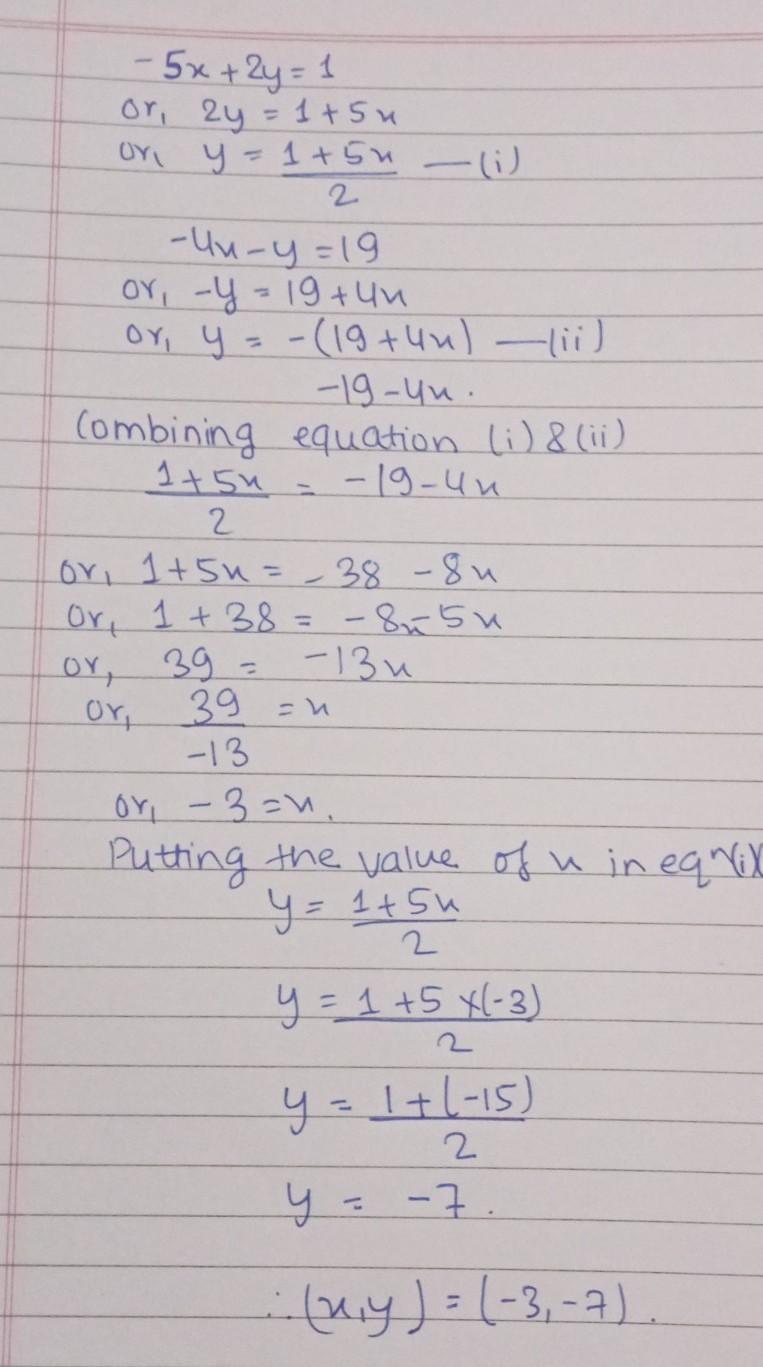 -5x + 2y = 1
or, 2y = 1 + 5x
or, y = (1 + 5x)/2 —(i)
-4x - y = 19
or, -y = 19 + 4x
or, y = -(19 + 4x) —(ii)
-19 - 4x.
Combining equation (i) & (ii)
(1 + 5x)/2 = -19 - 4x
or, 1 + 5x = -38 - 8x
or, 1 + 38 = -8x - 5x
or, 39 = -13x
or, 39/-13 = x
or, -3 = x.
Putting the value of x in eqn (i)
y = (1 + 5x)/2
y = (1 + 5 × (-3))/2
y = (1 + (-15))/2
y = -7.
∴ (x, y) = (-3, -7).